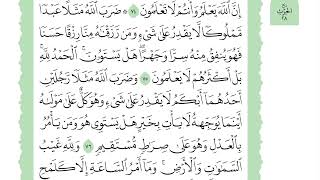 إِنَّ ٱللَّهَ يَعۡلَمُ وَأَنتُمۡ لَا تَعۡلَمُونَ ٧٤ ۞ ضَرَبَ ٱللَّهُ مَثَلًا عَبۡدٗا
مَّمۡلُوكٗا لَّا يَقۡدِرُ عَلَىٰ شَيۡءٖ وَمَن رَّزَقۡنَٰهُ مِنَّا رِزۡقًا حَسَنٗا
فَهُوَ يُنفِقُ مِنۡهُ سِرّٗا وَجَهۡرًاۖ هَلۡ يَسۡتَوُۥنَۚ ٱلۡحَمۡدُ لِلَّهِۚ
بَلۡ أَكۡثَرُهُمۡ لَا يَعۡلَمُونَ ٧٥ وَضَرَبَ ٱللَّهُ مَثَلٗا رَّجُلَيۡنِ
أَحَدُهُمَآ أَبۡكَمُ لَا يَقۡدِرُ عَلَىٰ شَيۡءٖ وَهُوَ كَلٌّ عَلَىٰ مَوۡلَىٰهُ
أَيۡنَمَا يُوَجِّههُّ لَا يَأۡتِ بِخَيۡرٍ هَلۡ يَسۡتَوِي هُوَ وَمَن يَأۡمُرُ
بِٱلۡعَدۡلِ وَهُوَ عَلَىٰ صِرَٰطٖ مُّسۡتَقِيمٖ ٧٦ وَلِلَّهِ غَيۡبُ
ٱلسَّمَٰوَٰتِ وَٱلۡأَرۡضِۚ وَمَآ أَمۡرُ ٱلسَّاعَةِ إِلَّا كَلَمۡحِ
رُبُع
الحِزْب
٢٨